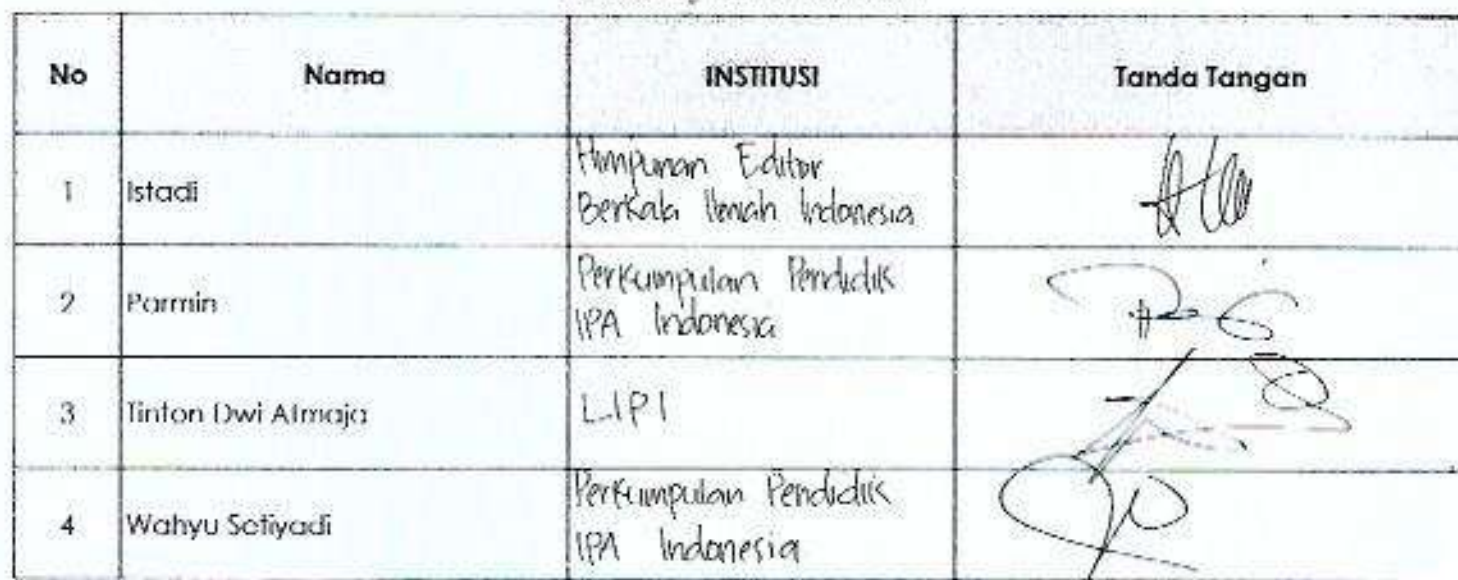 No Nama INSTITUSI Tanda Tangan
1 Istadi Himpunan Editor
Berkala Ilmiah Indonesia
2 Parmin Perkumpulan Pendidik
IPA Indonesia
3 Tinton Dwi Atmaja LIPI
4 Wahyu Setiyadi Perkumpulan Pendidik
IPA Indonesia